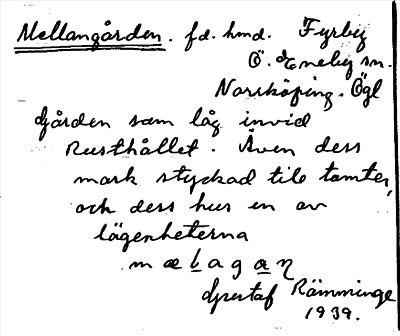 Mellangården. fd. hmd. Fyrby
Ö. Eneby sn.
Norrköping. Ögl
Gården som låg invid
Rusthållet. Även dess
mark styckad till tomter,
och dess hus en av
lägenheterna
mælagaŋ
Gustaf Rämminge
1939.